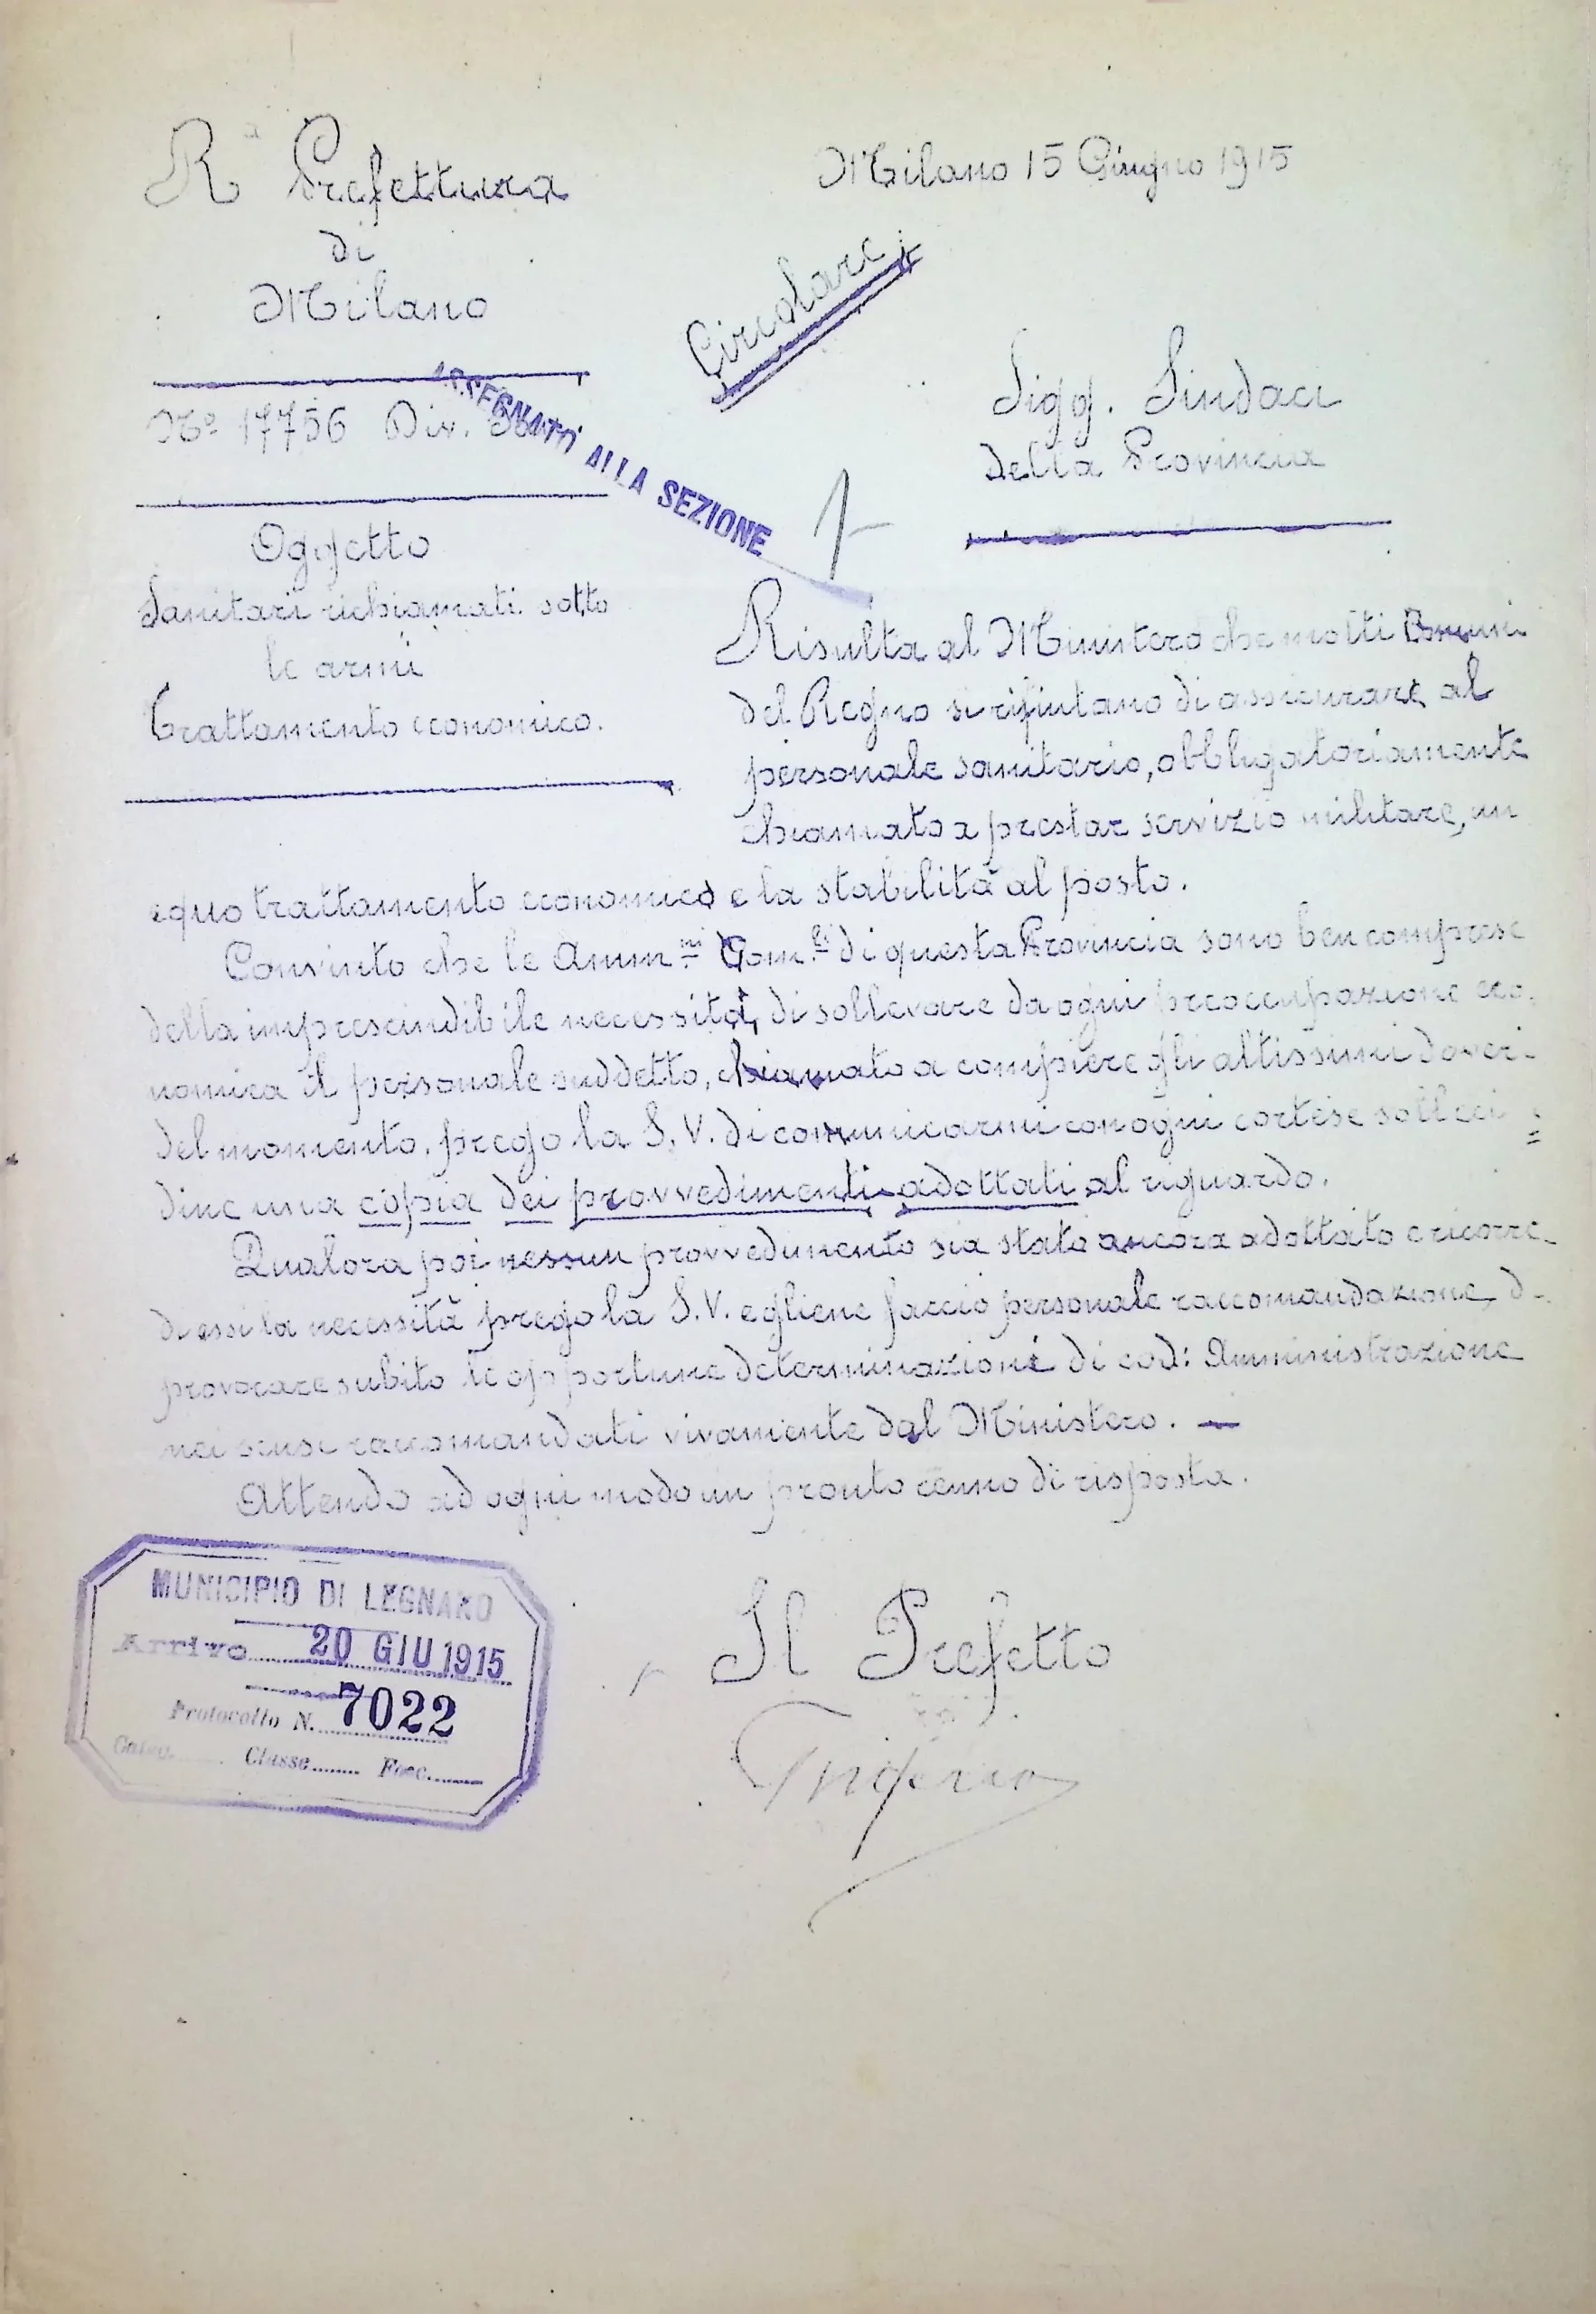 Rª Prefettura
di
Milano
Milano 15 Giugno 1915
Circolare
Nº 17756 Div.
ASSEGNATO ALLA SEZIONE 1
Sigg. Sindaci
della Provincia
Oggetto
Sanitari richiamati sotto
le armi
Trattamento economico.
Risulta al Ministero che molti Comuni
del Regno si rifiutano di assicurare al
personale sanitario, obbligatoriamente
chiamato a prestar servizio militare, un
equo trattamento economico e la stabilità al posto.
Convinto che le Ammⁿⁱ Comˡⁱ di questa Provincia sono ben comprese
della imprescindibile necessità, di sollevare da ogni preoccupazione eco-
nomica il personale suddetto, chiamato a compiere gli altissimi doveri
del momento, prego la S. V. di comunicarmi con ogni cortese solleci=
dine una copia dei provvedimenti adottati al riguardo.
Qualora poi nessun provvedimento sia stato ancora adottato e ricorre-
di essi la necessità prego la S. V. e gliene faccio personale raccomandazione, d-
provocare subito le opportune determinazioni di cod: Amministrazione
nei sensi raccomandati vivamente dal Ministero. —
Attendo ad ogni modo un pronto cenno di risposta.
Il Prefetto
MUNICIPIO DI LEGNANO
Arrivo 20 GIU 1915
Protocollo N. 7022
Categ. Classe Fasc.